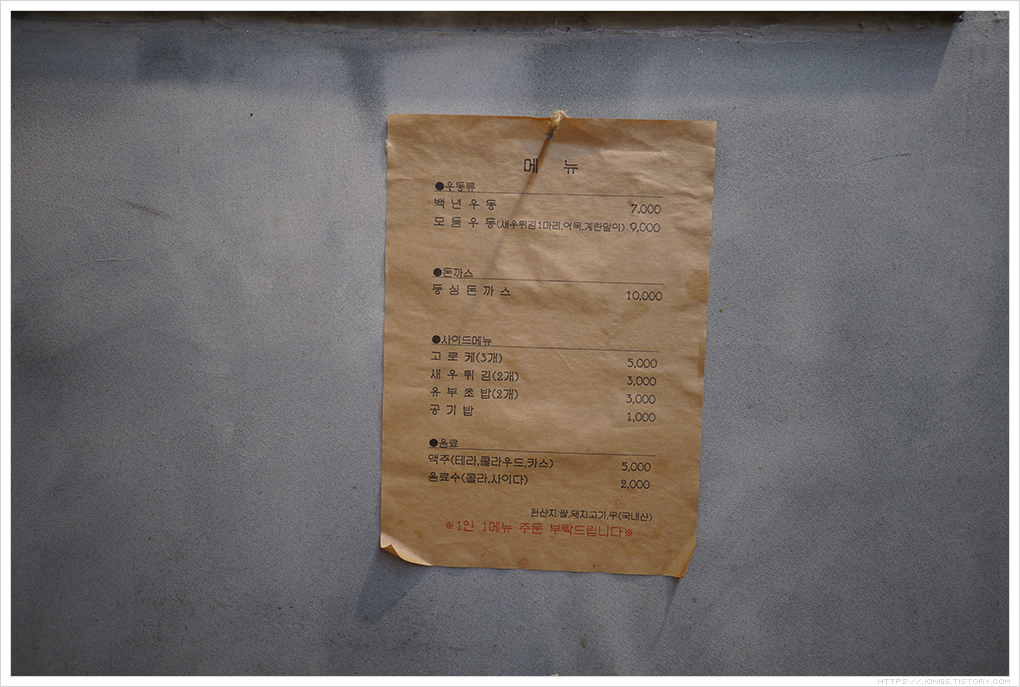 메 뉴
●우동류
백 년 우 동 7,000
모 듬 우 동(새우튀김1마리,어묵,계란말이) 9,000
●돈까스
등 심 돈 까 스 10,000
●사이드메뉴
고 로 케(3개) 5,000
새 우 튀 김(2개) 3,000
유 부 초 밥(2개) 3,000
공 기 밥 1,000
●음료
맥주(테라,클라우드,카스) 5,000
음료수(콜라,사이다) 2,000
원산지:쌀,돼지고기,무(국내산)
※1인 1메뉴 주문 부탁드립니다※
HTTPS://JONGS.TISTORY.COM